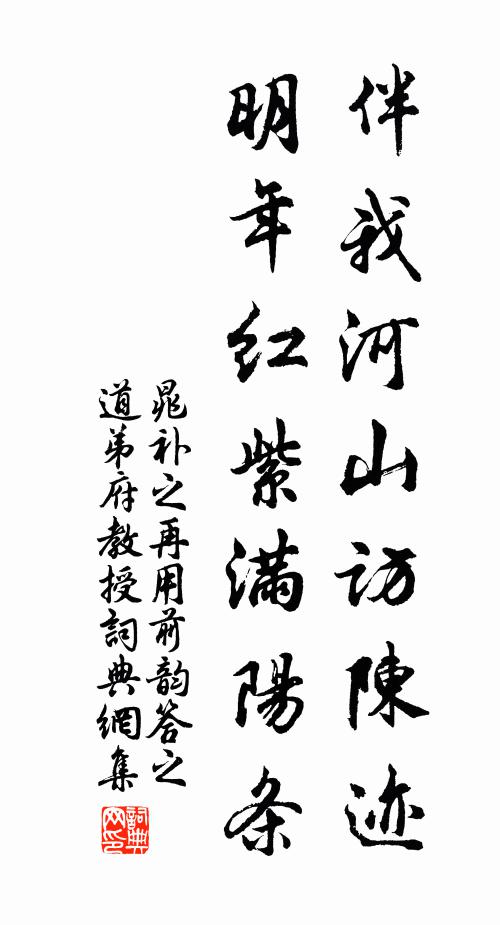 伴我河山访陳迹
明年红紫满陽条
晁补之再用前韵答之
道弟府教授詞典網集
詞典
网印